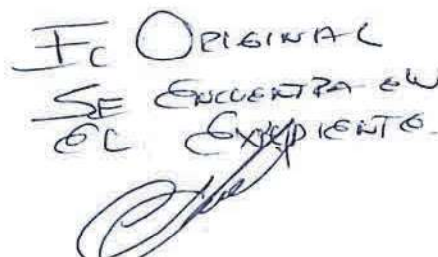 El Original
se encuentra en
el Expediente.